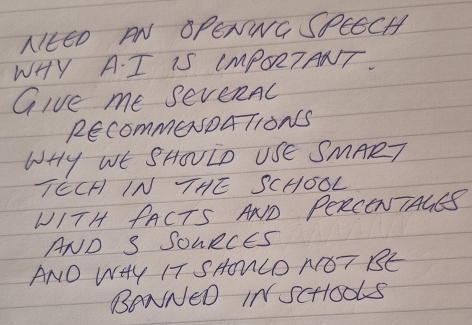 NEED AN OPENING SPEECH
WHY A.I IS IMPORTANT.
GIVE ME SEVERAL
RECOMMENDATIONS
WHY WE SHOULD USE SMART
TECH IN THE SCHOOL
WITH FACTS AND PERCENTAGES
AND 3 SOURCES
AND WHY IT SHOULD NOT BE
BANNED IN SCHOOLS